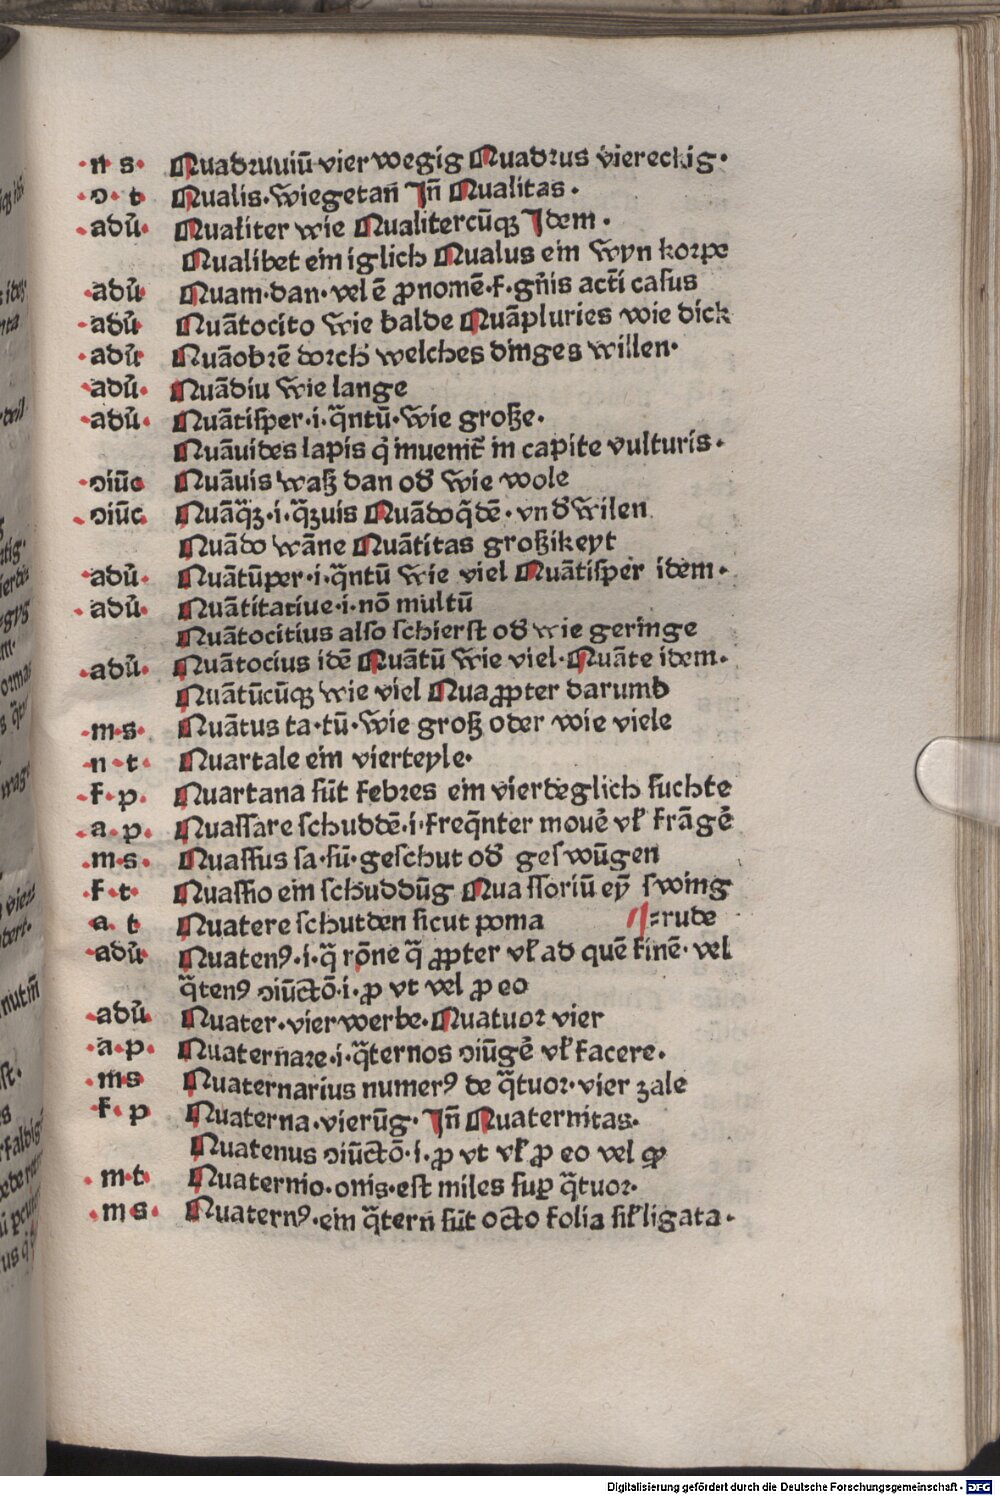 ·n s· Quadruuiū·vier wegig Quadrus viereckig·
·ɔ· t· Qualis·wiegetan̄ Jn̄ Qualitas·
·adu̇· Qualiter wie Qualitercūqꝫ Jdem·
Qualibet ein iglich Qualus ein wyn korpe
·adu̇· Quam·dan·vel ē ꝓnomē·f·gn̄is acti̇ casus
·adu̇· Quātocito wie balde Quāpluries wie dick
·adu̇· Quāobrē dorch welches dinges willen·
·adu̇· Quādiu wie lange
·adu̇· Quātisper·i·q̄ntū·wie große·
Quāuides lapis q̇ inuenit̄ in capite vulturis·
·ɔiūc Quāuis waß dan od̄ wie wole
·ɔiūc Quāq̄ꝫ·i·q̄ꝫuis Quādoq̄dē·vnd̄ wilen
Quādo wāne Quātitas großikeyt
·adu̇· Quātūper·i·q̄ntū wie viel Quātisper idem·
·adu̇· Quātitatiue·i·nō multū
Quātocitius also schierst od̄ wie geringe
·adu̇· Quātocius idē Quātū wie viel·Quāte idem·
Quātūcūqꝫ wie viel Quaꝓpter darumb
·m·s· Quātus ta·tū·wie groß oder wie viele
·n·t· Quartale ein vierteyle·
·f·p· Quartana sūt febres ein vierdeglich suchte
·a·p· Quassare schuddē·i·freq̄nter mouē vƚ frāgē
·m·s· Quassus sa·sū·geschut od̄ geswūgen
·f·t· Quassio ein schuddūg Quassoriū eȳ swing
a· t Quatere schutden sicut poma =rude
·adu̇· Quatenꝰ·i·q̄ rōne q̄ ꝓpter vƚ ad quē finē·vel
q̄tenꝰ ɔiūctō·i·ꝓ vt vel ꝓ eo
·adu̇· Quater·vier werbe·Quatuor vier
·a·p· Quaternare·i·q̄ternos ɔiūgē vƚ facere·
·ms Quaternarius numerꝰ de q̄tuor·vier zale
f·p Quaterna·vierūg·Jn̄ Quaternitas·
Quatenus ɔiūctō·i·ꝓ vt vƚ ꝓ eo vel
·m·t· Quaternio·onis·est miles suꝑ q̄tuor·
·m s· Quaternꝰ·ein q̄tern sūt octo folia siƚ ligata·
Digitalisierung gefördert durch die Deutsche Forschungsgemeinschaft - DFG